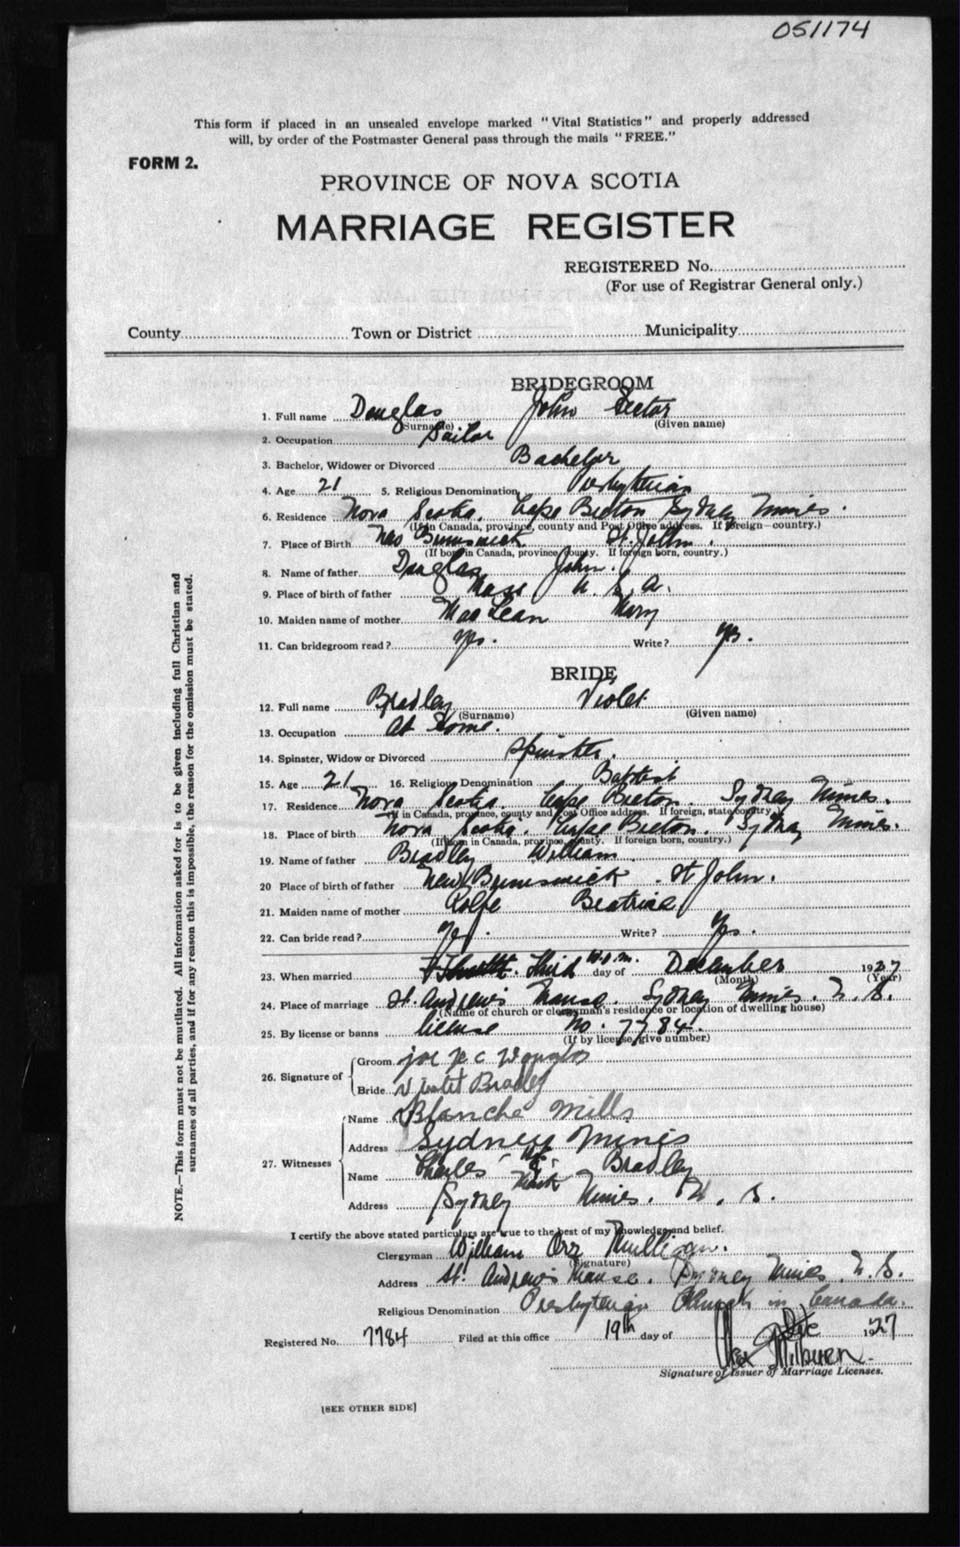 051174
This form if placed in an unsealed envelope marked "Vital Statistics" and properly addressed
will, by order of the Postmaster General pass through the mails "FREE."
FORM 2.
PROVINCE OF NOVA SCOTIA
MARRIAGE REGISTER
REGISTERED No.
(For use of Registrar General only.)
County Town or District Municipality
BRIDEGROOM
1. Full name Douglas John
(Surname) (Given name)
2. Occupation Sailor
3. Bachelor, Widower or Divorced Bachelor
4. Age 21 5. Religious Denomination Presbyterian
6. Residence Nova Scotia. Cape Breton Sydney Mines.
(If in Canada, province, county and Post Office address. If foreign—country.)
7. Place of Birth New Brunswick St. John.
(If born in Canada, province, county. If foreign born, country.)
8. Name of father Douglas John.
9. Place of birth of father Mass U. S. A.
10. Maiden name of mother MacLean Mary
11. Can bridegroom read? Yes. Write? Yes.
BRIDE
12. Full name Bradley Violet
(Surname) (Given name)
13. Occupation At Home.
14. Spinster, Widow or Divorced Spinster.
15. Age 21 16. Religious Denomination Baptist
17. Residence Nova Scotia. Cape Breton. Sydney Mines.
(If in Canada, province, county and Post Office address. If foreign, state country.)
18. Place of birth Nova Scotia. Cape Breton. Sydney Mines.
(If born in Canada, province, county. If foreign born, country.)
19. Name of father Bradley William
20 Place of birth of father New Brunswick. St John.
21. Maiden name of mother Rolfe Beatrice
22. Can bride read? Yes. Write? Yes.
23. When married Third day of December 1927
(Month) (Year)
24. Place of marriage St. Andrew's Manse. Sydney Mines. N. S.
(Name of church or clergyman's residence or location of dwelling house)
25. By license or banns license No. 7784.
(If by license, give number)
26. Signature of Groom Douglas
Bride Violet Bradley
27. Witnesses Name Blanche Mills
Address Sydney Mines
Name Charles Bradley
Address Sydney Mines. N. S.
I certify the above stated particulars are true to the best of my knowledge and belief.
Clergyman William Orr Mulligan.
(Signature)
Address St. Andrew's Manse. Sydney Mines. N. S.
Religious Denomination Presbyterian Church in Canada.
Registered No. 7784 Filed at this office 19th day of Dec 1927
Signature of Issuer of Marriage Licenses.
[SEE OTHER SIDE]
NOTE.—This form must not be mutilated. All information asked for is to be given including full Christian and
surnames of all parties, and if for any reason this is impossible, the reason for the omission must be stated.